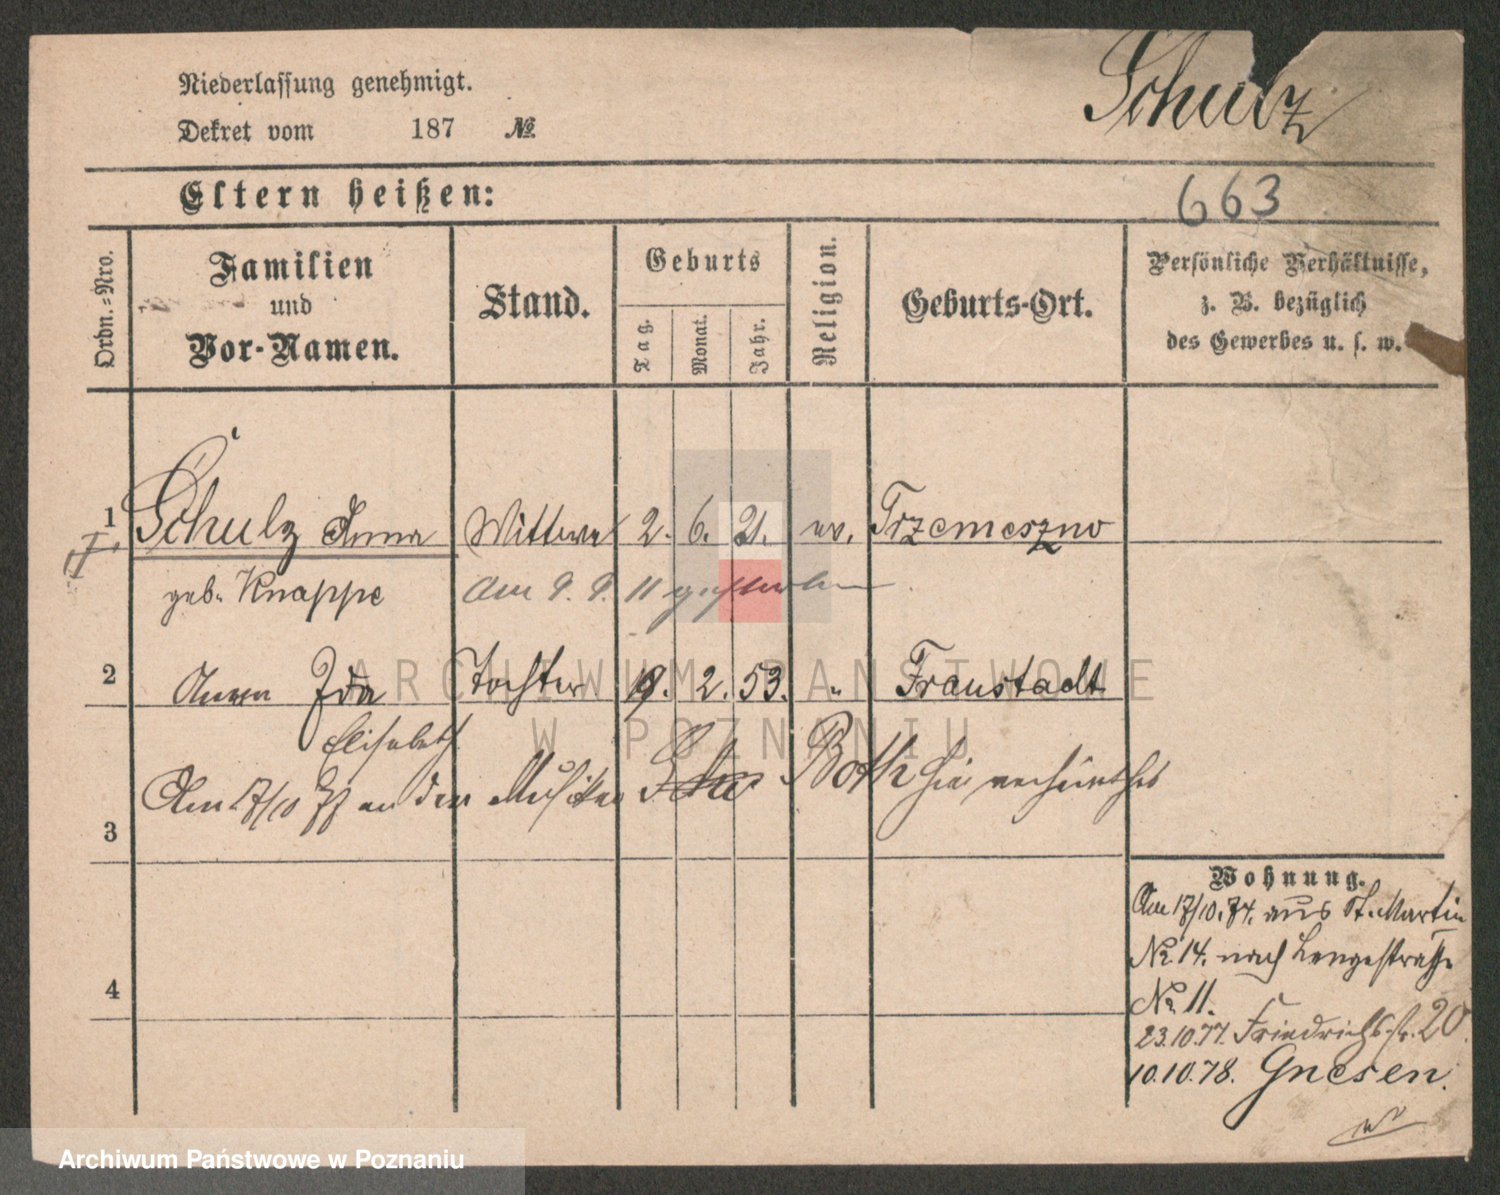 Schulz
Niederlassung genehmigt.
Dekret vom 187 №.
Eltern heißen:
663
Ordn.-Nro.
Familien
und
Vor-Namen.
Stand.
Geburts
Tag.
Monat.
Jahr.
Religion.
Geburts-Ort.
Persönliche Verhältnisse,
z. B. bezüglich
des Gewerbes u. s. w.
1 Schulz Anna Wittwe 2. 6. 21. ev. Trzemeszno
geb. Knappe Am 9. 9. 11 gestorben
2 Anna Ida Tochter 9. 2. 53. " Fraustadt
Elisabeth
Am 17/10 77 an den Musiker Both hie verheirathet
3
4
Wohnung.
Am 17/10. 74. aus St. Martin
No 14. nach Langestraße
No 11.
23.10.77. Friedrichs-str. 20.
10.10.78. Gnesen.
ARCHIWUM PAŃSTWOWE
W POZNANIU
Archiwum Państwowe w Poznaniu